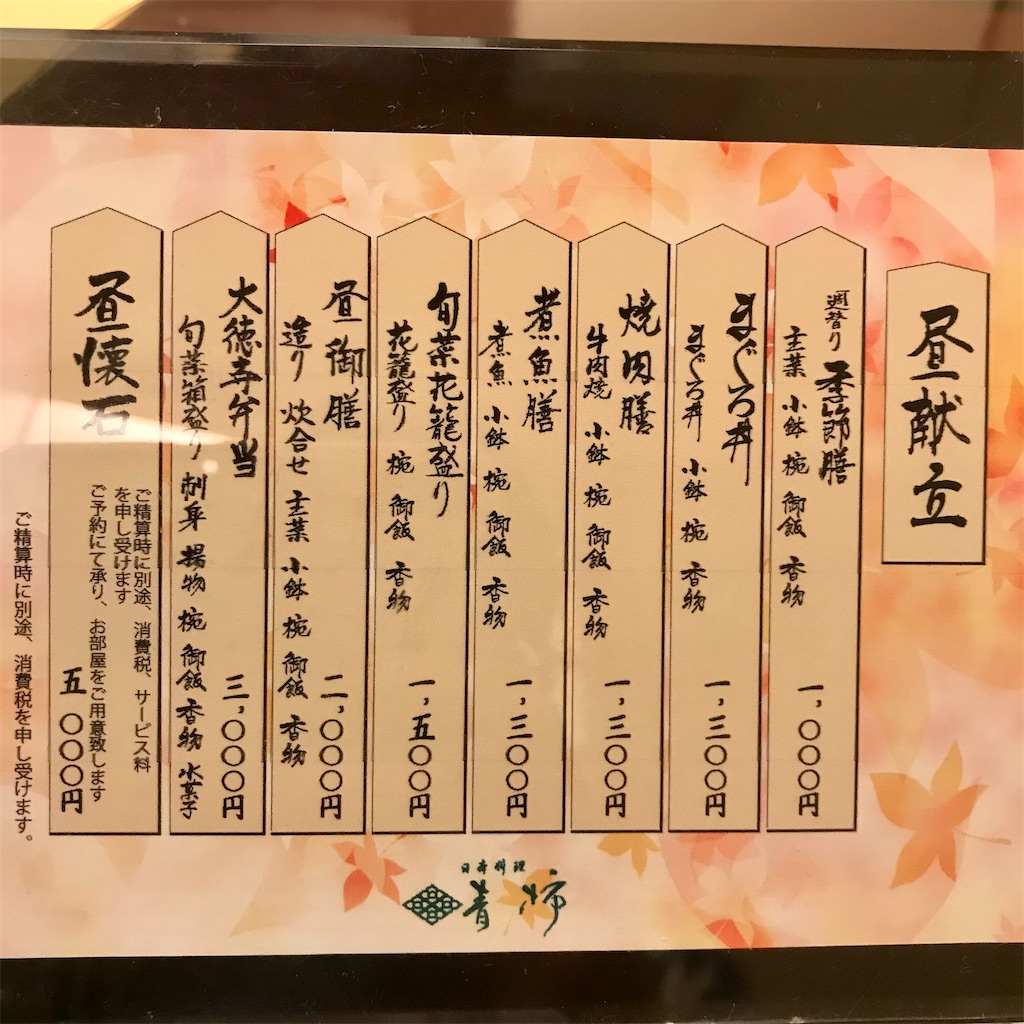 昼献立
週替り 季節膳
主菜 小鉢 椀 御飯 香物
一,〇〇〇円
まぐろ丼
まぐろ丼 小鉢 椀 香物
一,三〇〇円
焼肉膳
牛肉焼 小鉢 椀 御飯 香物
一,三〇〇円
煮魚膳
煮魚 小鉢 椀 御飯 香物
一,三〇〇円
旬菜花籠盛り
花籠盛り 椀 御飯 香物
一,五〇〇円
昼御膳
造り 炊合せ 主菜 小鉢 椀 御飯 香物
二,〇〇〇円
大徳寺弁当
旬菜箱盛り 刺身 揚物 椀 御飯 香物 水菓子
三,〇〇〇円
昼懐石
ご精算時に別途、消費税、サービス料
を申し受けます
ご予約にて承り、お部屋をご用意致します
五〇〇〇円
ご精算時に別途、消費税を申し受けます。
日本料理
青柿